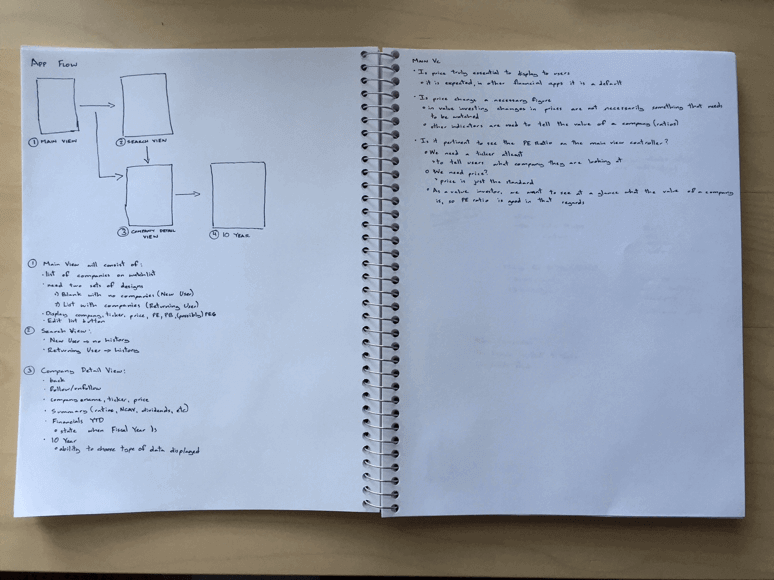 App Flow
① Main View
② Search View
③ Company Detail
View
④ 10 Year
① Main View will consist of:
· list of companies on watchlist
· need two sets of designs
Blank with no companies (New User)
List with companies (Returning User)
· Display company, ticker, price, PE, PB, (possibly) PEG
· Edit list button
② Search View:
· New User → no history
· Returning User → history
③ Company Detail View:
· back
· Follow/unfollow
· company name, ticker, price
· Summary (ratios, NCAV, dividends, etc)
· Financials YTD
° state when Fiscal Year is
· 10 Year
° ability to choose type of data displayed
Main Vc
· Is price truly essential to display to users
° it is expected, in other financial apps it is a default
· Is price change a necessary figure
° in value investing changes in prices are not necessarily something that needs
to be watched
° other indicators are used to tell the value of a company (ratios)
· Is it pertinent to see the PE Ratio on the main view controller?
° We need a ticker atleast
to tell users what company they are looking at
° We need price?
price is just the standard
° As a value investor, we want to see at a glance what the value of a company
is, so PE ratio is good in that regards